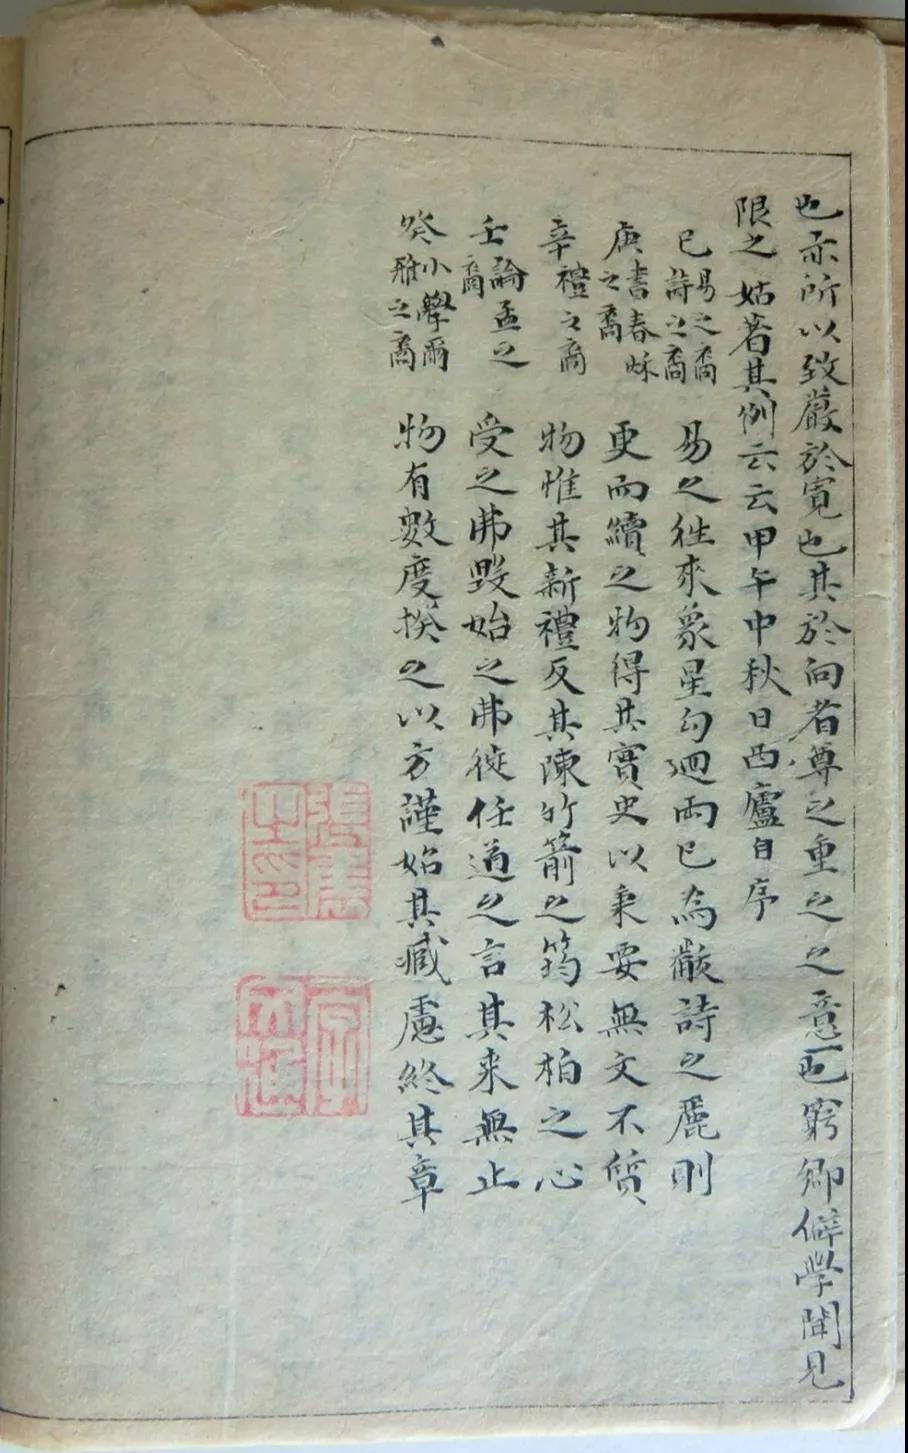 也亦所以致嚴於寬也其於向者尊之重之之意也窮鄉僻學聞見
限之姑著其例云云甲午中秋日西廬自序
己易之裔詩之裔 易之往來象星勾迴兩己為黻詩之麗則
庚書春秌之裔 更而續之物得其實史以秉要無文不質
辛禮之裔 物惟其新禮反其陳竹箭之筠松柏之心
壬論孟之裔 受之弗毀始之弗從任道之言其來無止
癸小學爾雅之裔 物有數度揆之以方謹始其臧慮終其章
之印